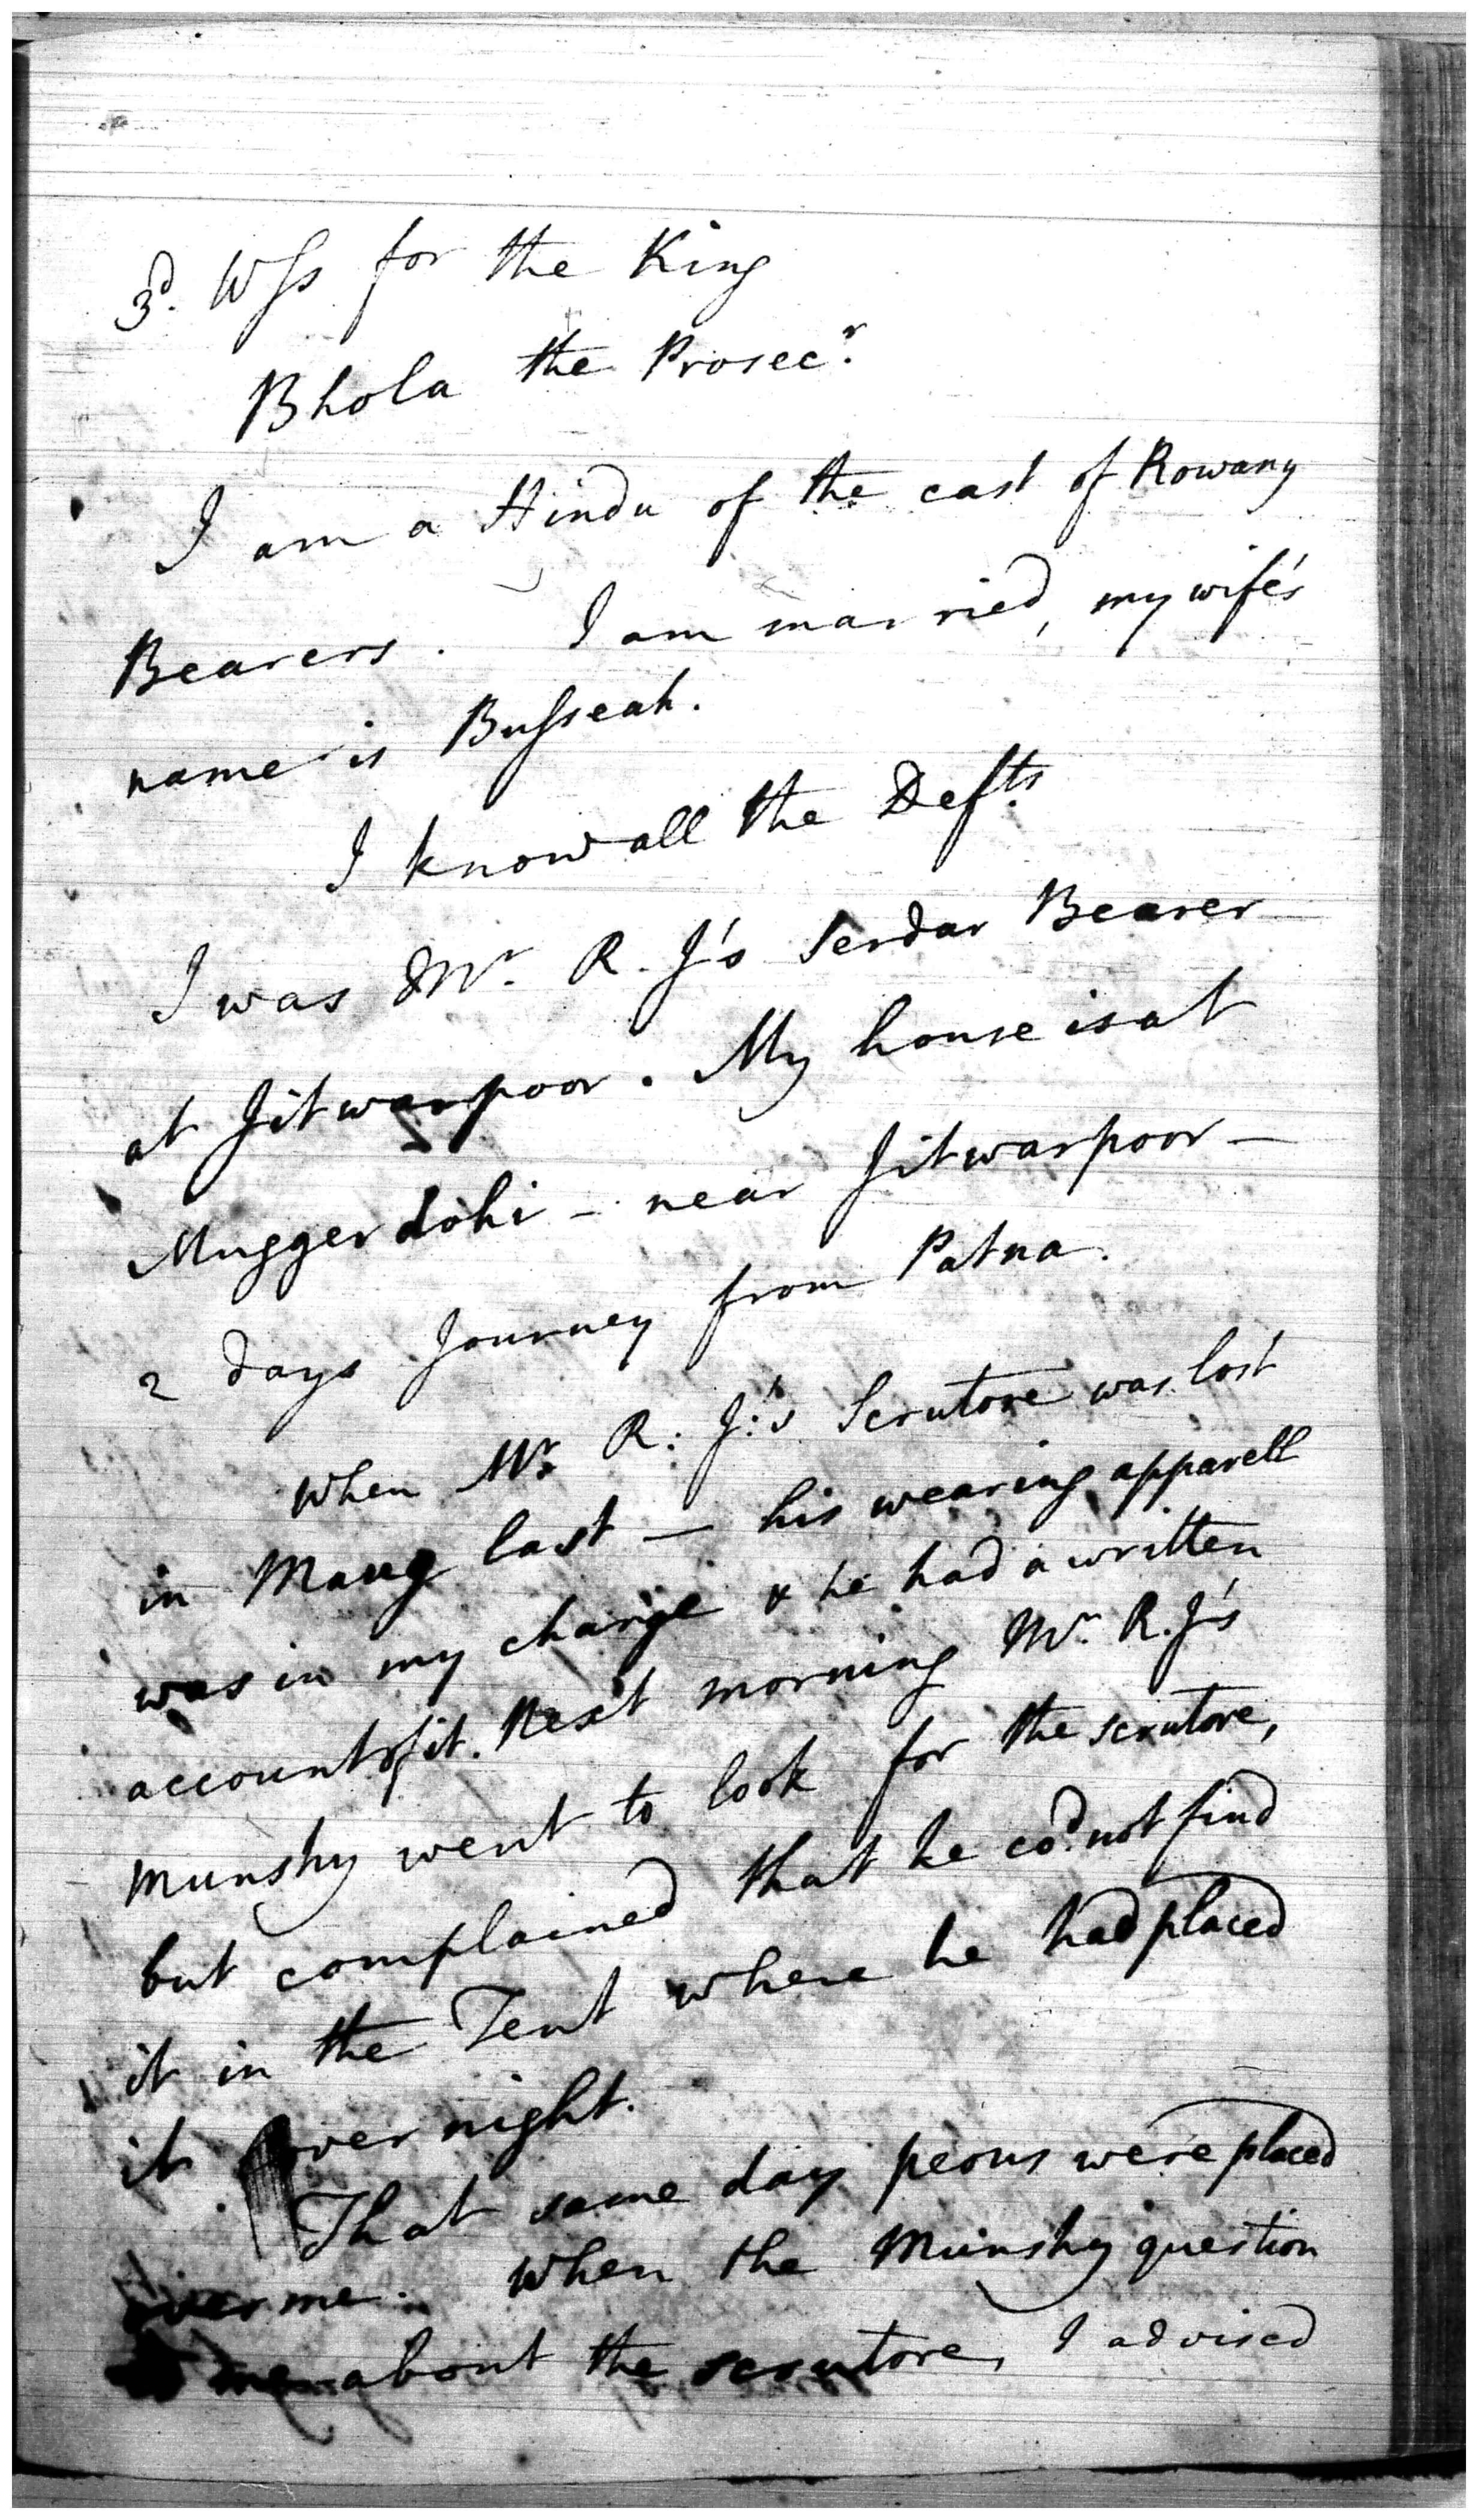 3d. Wss for the King
Bhola the Prosecr.
I am a Hindu of the cast of Rowany
Bearers. I am married, my wife's
name is Busseah.
I know all the Defts
I was Mr. R. J's Serdar Bearer
at Jitwarpoor. My house is at
Muggerdohi – near Jitwarpoor –
2 days Journey from Patna.
When Mr. R: J:'s Scrutore was lost
in Maug last – his wearing apparell
was in my charge & he had a written
account of it. Next morning Mr. R. J's
Munshy went to look for the scrutore,
but complained that he cod. not find
it in the Tent where he had placed
it over night.
That same day peons were placed
over me. When the Munshy question
me about the scrutore, I advised